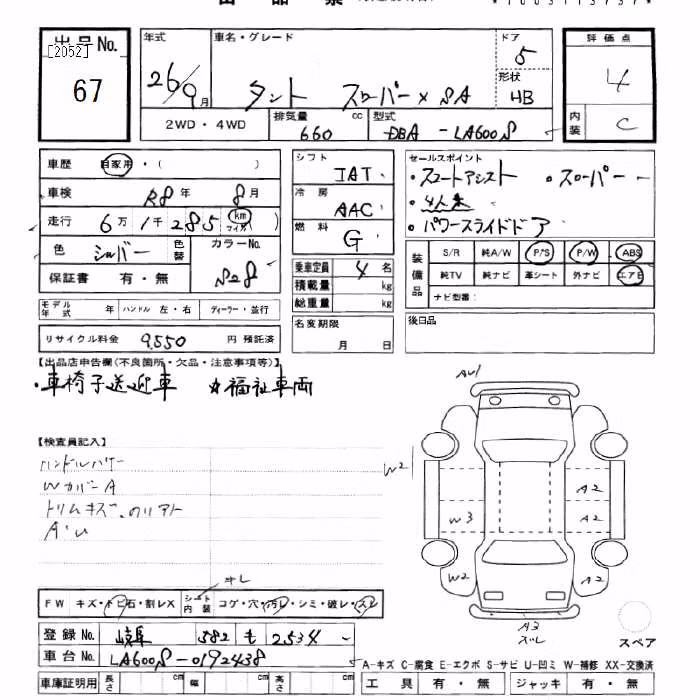 出品No.
[2052]
67
年式
26/9月
車名・グレード
タント スローパー×SA
ドア
5
形状
HB
評価点
4
内装
C
2WD・4WD
排気量
660
cc
型式
DBA-LA600S
車歴
自家用・( )
車検
R8年 8月
走行
6万1千285
km
マイル
色
シルバー
色替
カラーNo.
S28
保証書 有・無
モデル年式 年
ハンドル 左・右
ディーラー・並行
リサイクル料金 9,550 円 預託済
シフト
IAT
冷房
AAC
燃料
G
乗車定員 4 名
積載量 kg
総重量 kg
名変期限
月 日
セールスポイント
・スマートアシスト ・スローパー
・4人乗
・パワースライドドア
装備品
S/R 純A/W P/S P/W ABS
純TV 純ナビ 革シート 外ナビ エアB
ナビ型番:
後日品
【出品店申告欄(不良箇所・欠品・注意事項等)】
・車椅子送迎車 ☆福祉車両
【検査員記入】
WカバーA
AW1
W2
A2
W3
A2
W2
A2
A3
スレ
キレ
FW キズ・トビ石・割レX
シート内装 コゲ・穴・汚レ・シミ・破レ・スレ
登録No. 岐阜 582 も 2534
車台No. LA600S-0192438
車庫証明用 長さ cm 幅 cm 高さ cm
スペア
A-キズ C-腐食 E-エクボ S-サビ U-凹ミ W-補修 XX-交換済
工具 有・無 ジャッキ 有・無